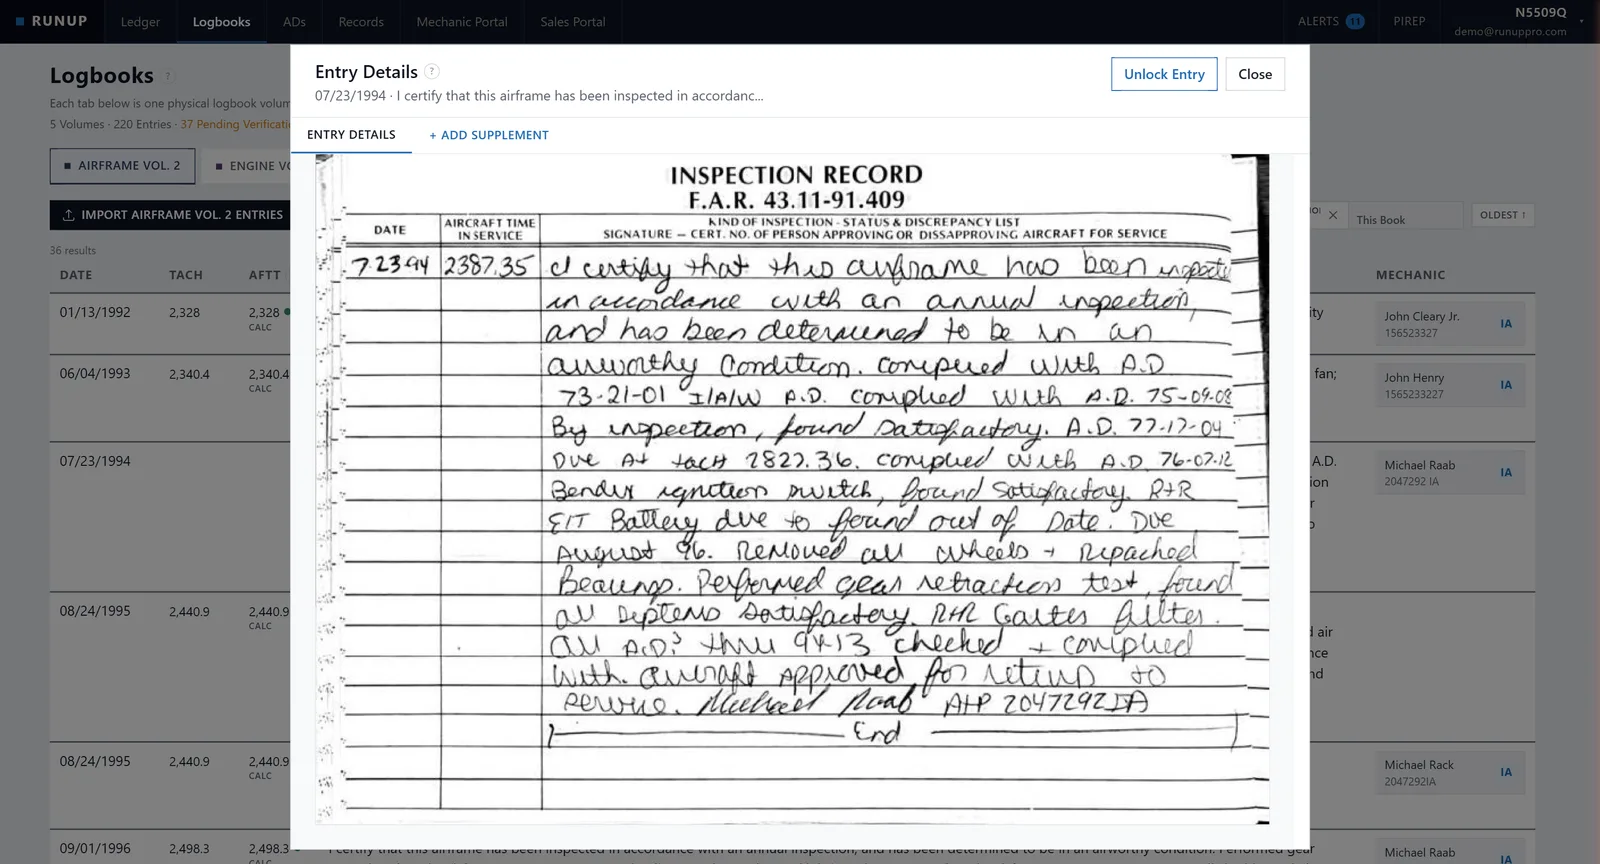 RUNUP
Ledger
Logbooks
ADs
Records
Mechanic Portal
Sales Portal
ALERTS 11
PIREP
N5509Q
demo@runuppro.com
Logbooks ?
Each tab below is one physical logbook volum
5 Volumes · 220 Entries · 37 Pending Verificati
AIRFRAME VOL. 2
ENGINE VO
IMPORT AIRFRAME VOL. 2 ENTRIES
This Book
OLDEST ↑
36 results
DATE TACH AFTT MECHANIC
01/13/1992 2,328 2,328
CALC
ity
John Cleary Jr.
156523327
IA
06/04/1993 2,340.4 2,340.4
CALC
fan;
John Henry
1565233227
IA
07/23/1994
A.D.
ion
Michael Raab
2047292 IA
IA
08/24/1995 2,440.9 2,440.9
CALC
d air
nce
nd
08/24/1995 2,440.9 2,440.9
CALC
Michael Rack
2047292IA
IA
09/01/1996 2,498.3 2,498.3
CALC
Michael Raab
IA
Entry Details ?
07/23/1994 · I certify that this airframe has been inspected in accordanc...
Unlock Entry
Close
ENTRY DETAILS
+ ADD SUPPLEMENT
INSPECTION RECORD
F.A.R. 43.11-91.409
DATE
AIRCRAFT TIME
IN SERVICE
KIND OF INSPECTION - STATUS & DISCREPANCY LIST
SIGNATURE — CERT. NO. OF PERSON APPROVING OR DISSAPPROVING AIRCRAFT FOR SERVICE
7-23-94 2387.35 I certify that this airframe has been inspecte
in accordance with an annual inspection,
and has been determined to be in an
airworthy Condition. complied With A.D
73-21-01 I/A/W A.D. complied With A.D. 75-09-08
By inspection, found Satisfactory. A.D. 77-17-04
Due At tach 2827.36. complied With A.D. 76-07-12
Bendix ignition switch, found Satisfactory. R+R
ELT Battery due to found out of Date. Due
August 96. Removed all wheels + repacked
Bearings. Performed gear retraction test, found
all systems satisfactory. R+R Garter fillter.
All A.D.s thru 94-13 checked + complied
With. aircraft approved for return to
service. Michael Raab A+P 2047292IA
End